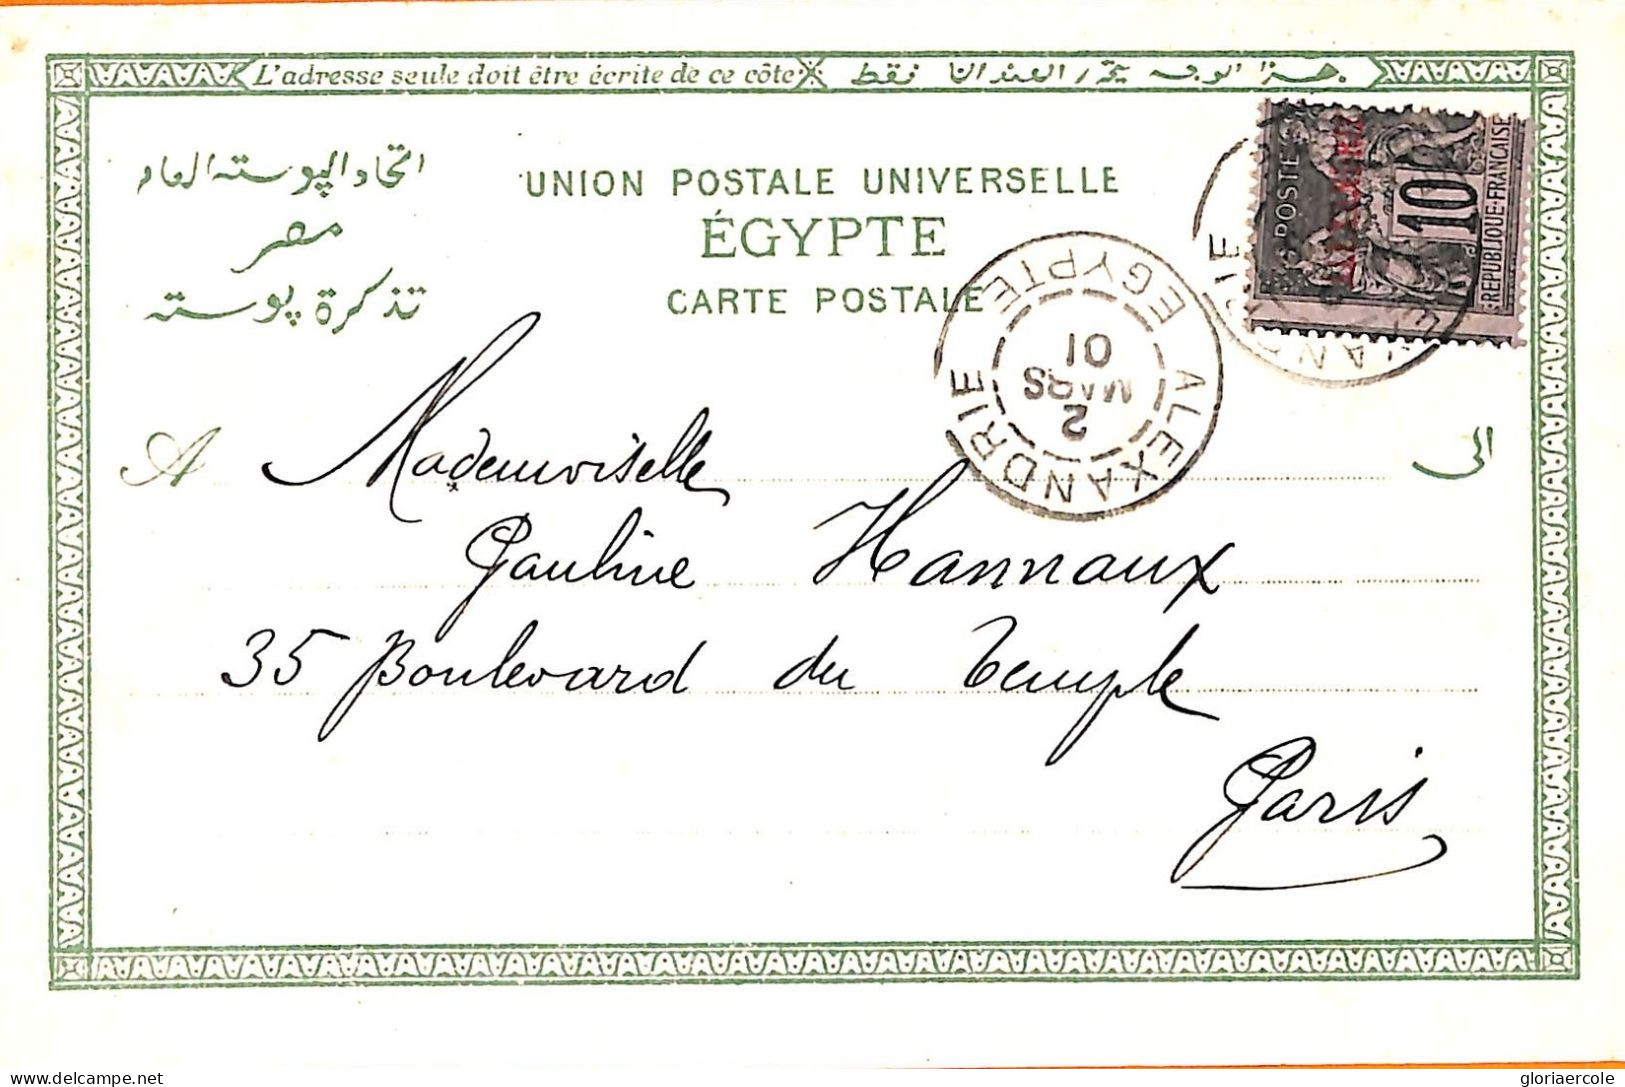 L'adresse seule doit être écrite de ce côté هذا الوجه يحرر العنوان فقط
اتحاد البوسته العام
مصر
تذكرة بوسته
UNION POSTALE UNIVERSELLE
ÉGYPTE
CARTE POSTALE
POSTES
10
REPUBLIQUE-FRANÇAISE
ALEXANDRIE
EGYPTE
2
MARS
01
A
الى
Mademoiselle
Pauline Hannaux
35 Boulevard du Temple
Paris
delcampe.net
gloriaercole